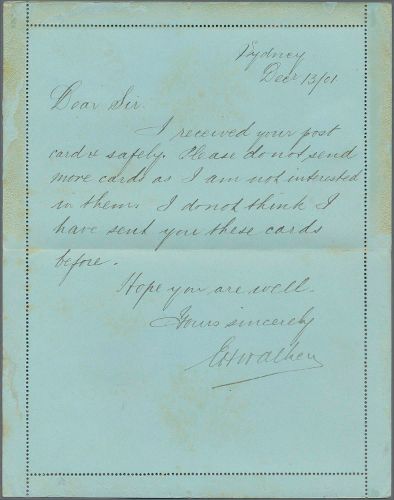 Sydney
Decr 13/01
Dear Sir.
I received your post
cards safely. Please do not send
more cards as I am not intrested
in them. I do not think I
have sent you these cards
before.
Hope you are well.
Yours sincerely